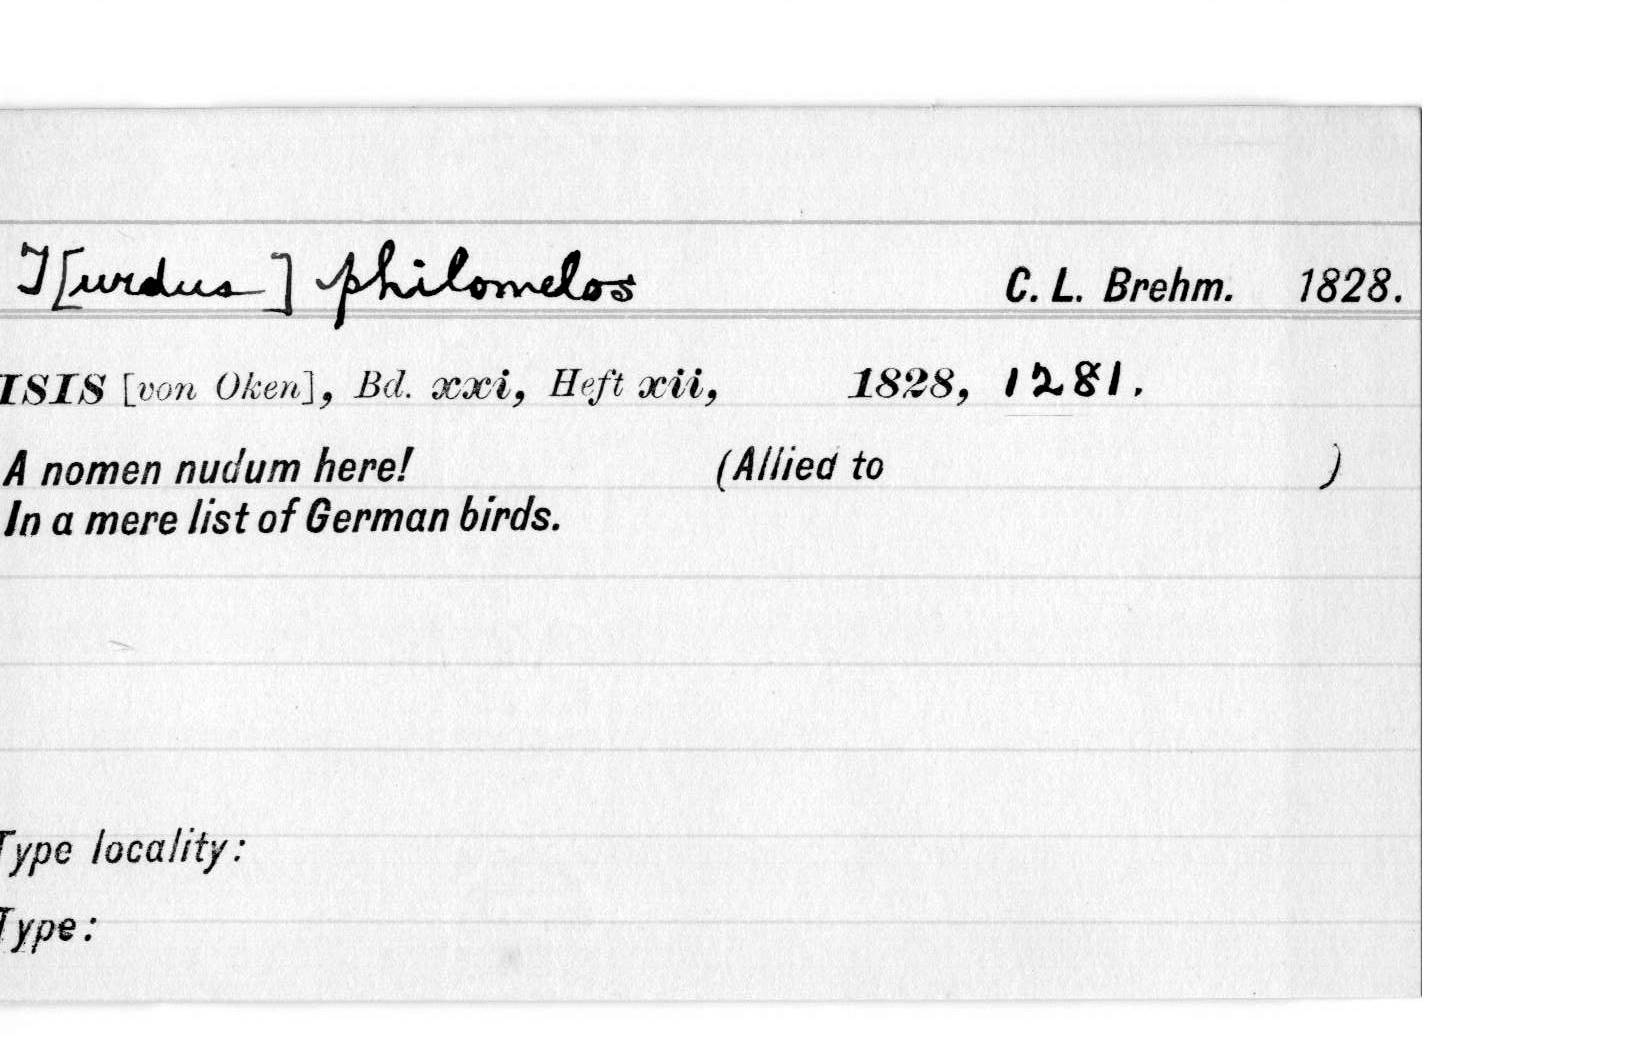 T[urdus] philomelos C. L. Brehm. 1828.
ISIS [von Oken], Bd. xxi, Heft xii, 1828, 1281.
A nomen nudum here! (Allied to )
In a mere list of German birds.
Type locality:
Type: